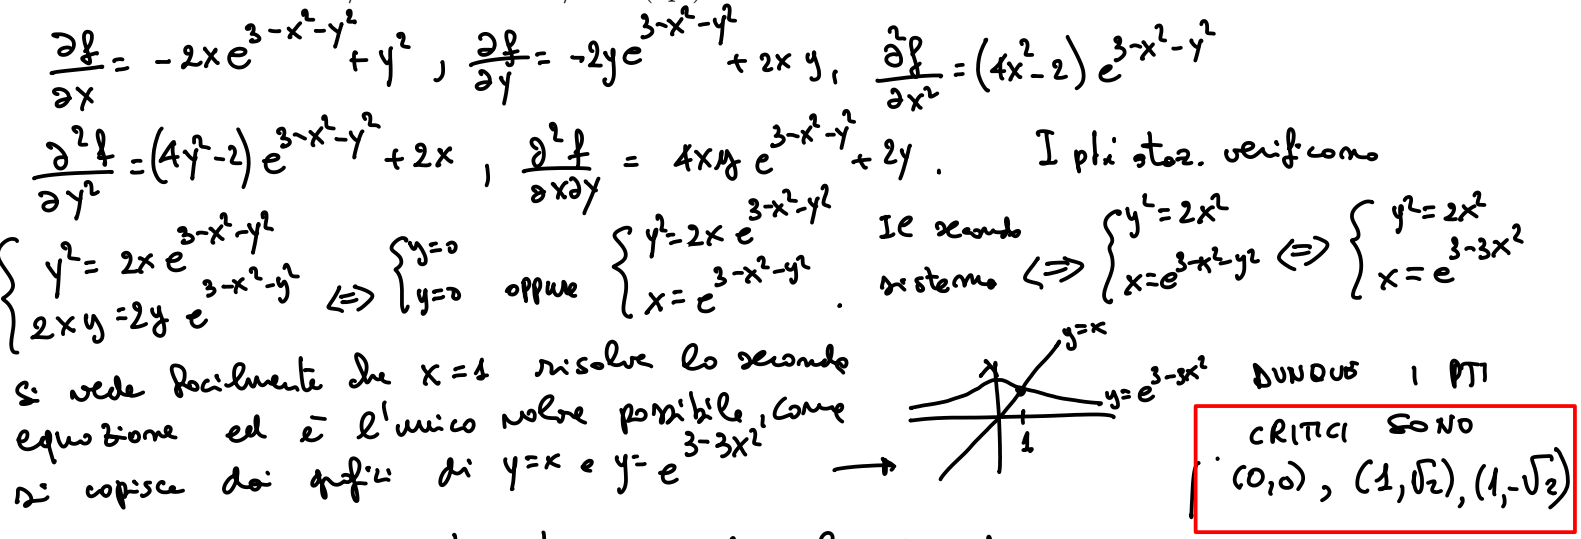 ∂f/∂x = -2x e^{3-x²-y²} + y² , ∂f/∂y = -2y e^{3-x²-y²} + 2xy, ∂²f/∂x² = (4x²-2) e^{3-x²-y²}
∂²f/∂y² = (4y²-2) e^{3-x²-y²} + 2x , ∂²f/∂x∂y = 4xy e^{3-x²-y²} + 2y . I pti staz. verificano
{ y² = 2x e^{3-x²-y²} ; 2xy = 2y e^{3-x²-y²} <=> { y=0 ; y=0 oppure { y² = 2x e^{3-x²-y²} ; x = e^{3-x²-y²} . Il secondo sistema <=> { y² = 2x² ; x = e^{3-x²-y²} <=> { y² = 2x² ; x = e^{3-3x²}
Si vede facilmente che x=1 risolve la seconda
equazione ed è l'unico valore possibile, come
si capisce dai grafici di y=x e y= e^{3-3x²} →
y=x
y=e^{3-3x²}
1
DUNQUE I PTI
CRITICI SONO
(0,0), (1,√2), (1,-√2)